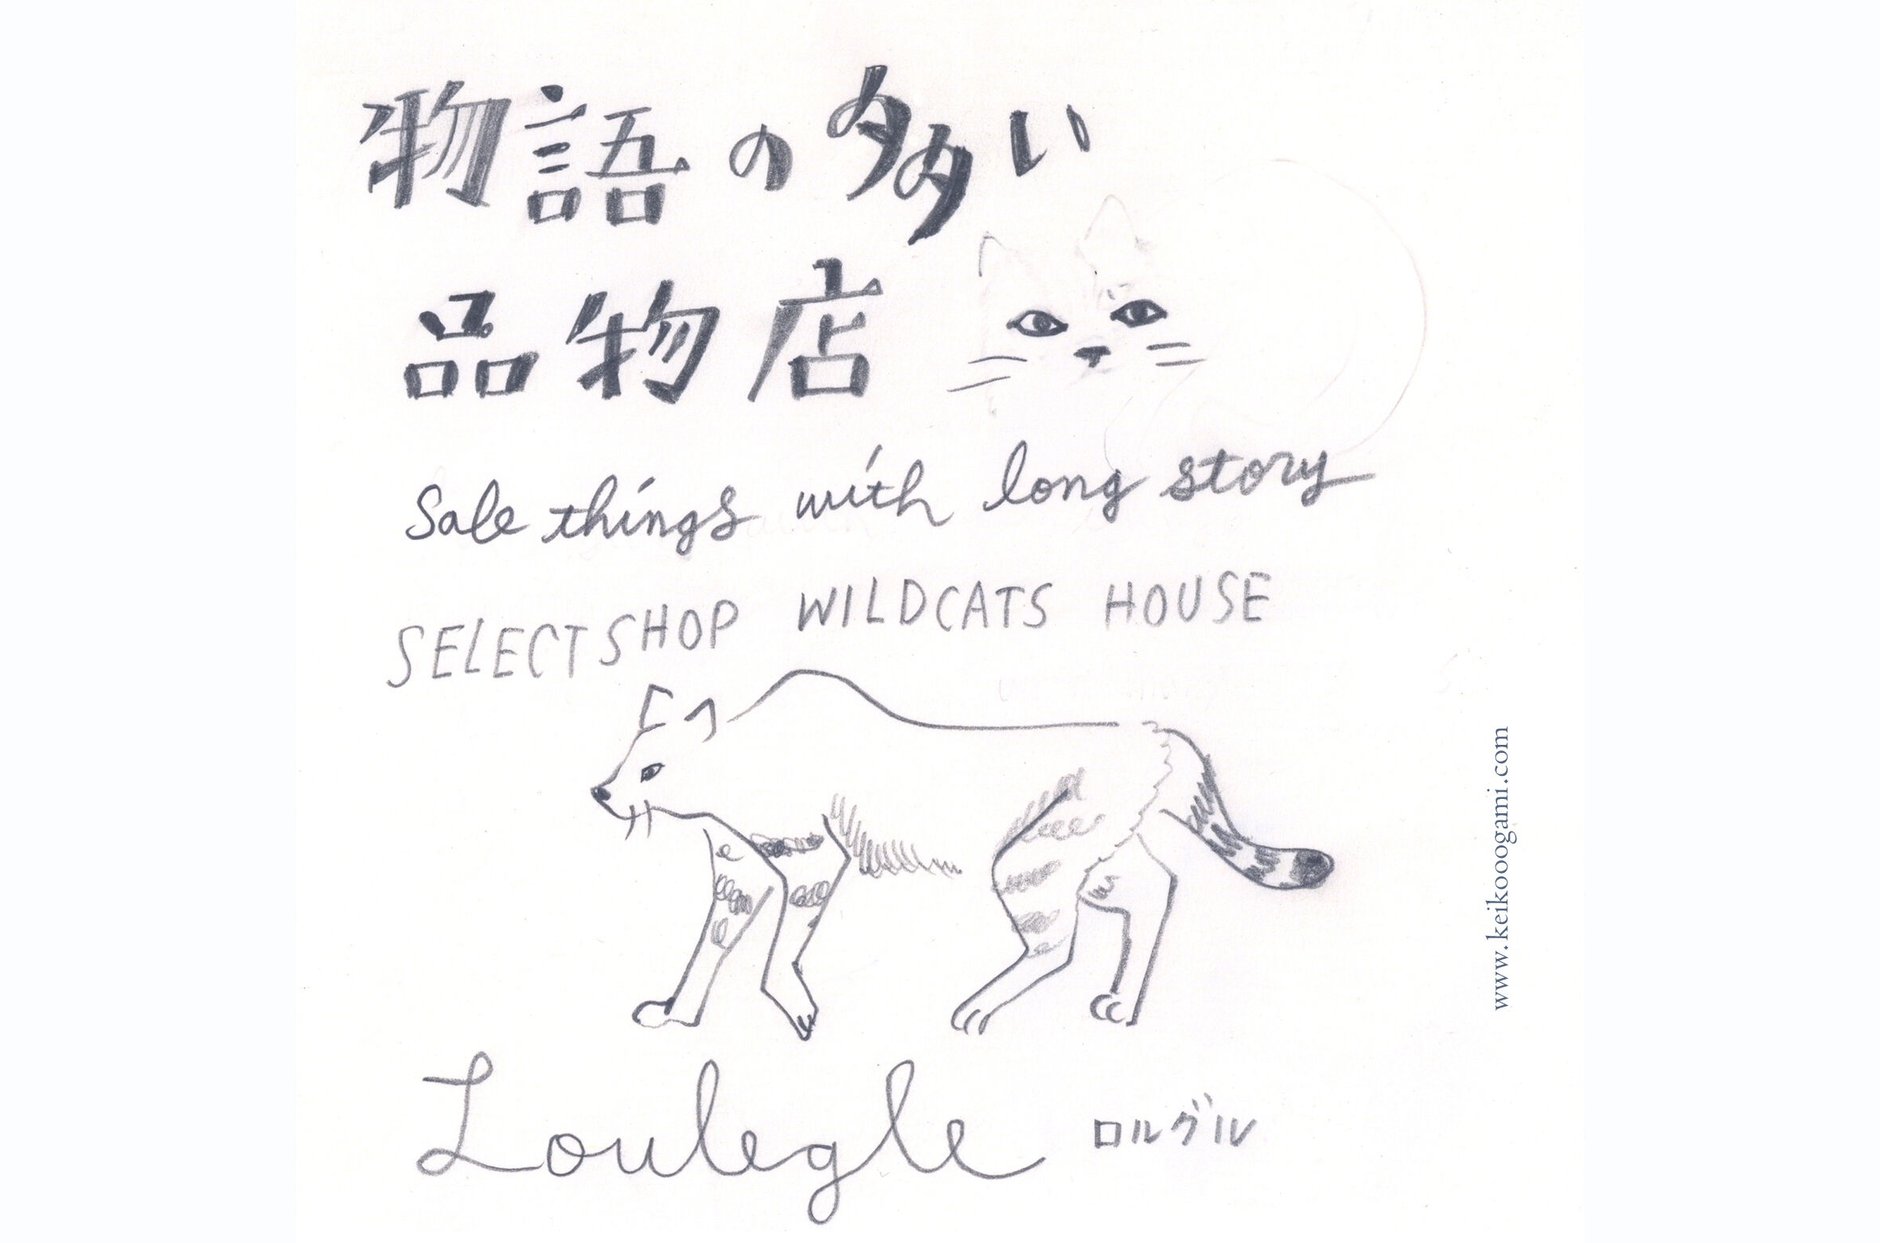 物語の多い
品物店
Sale things with long story
SELECT SHOP WILDCATS HOUSE
www.keikooogami.com
Loulegle ロルグル